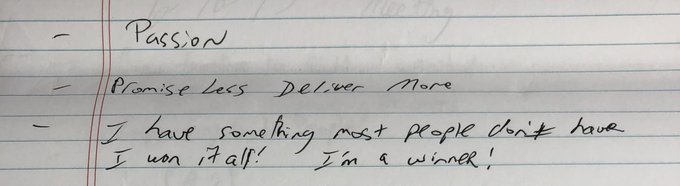 - Passion
- Promise Less Deliver More
- I have something most people don't have
I won it all! I'm a winner!